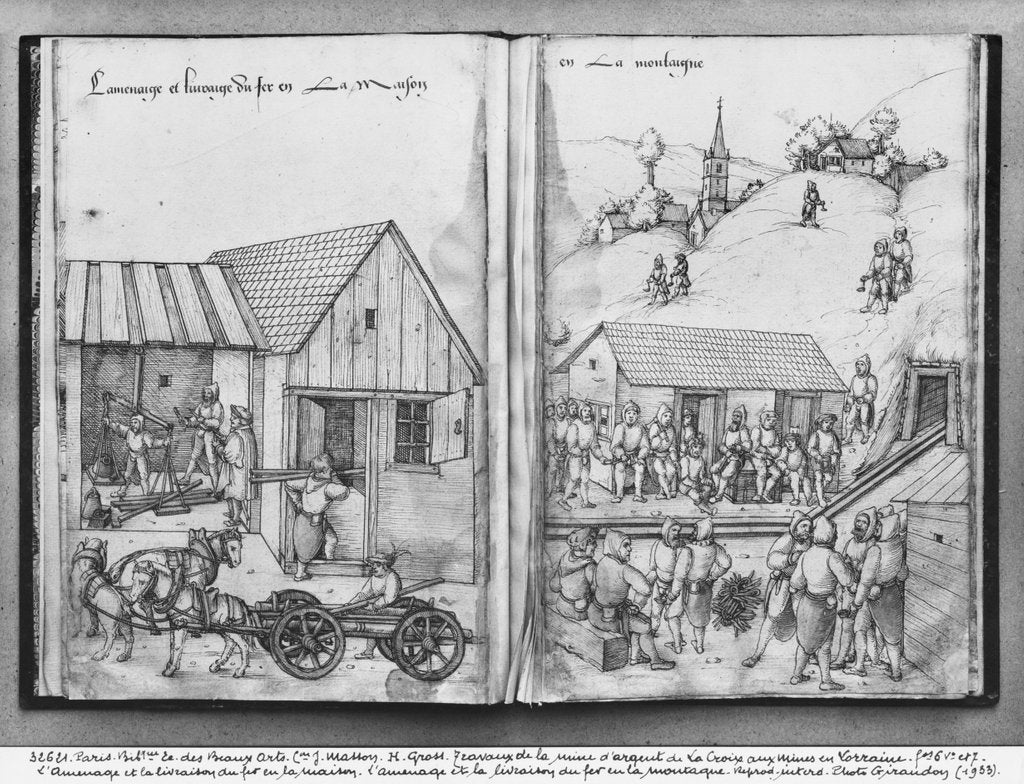 Lamenaige et livraige du fer en La Maison
en La montaigne
32621. Paris. Bibl^que Ec. des Beaux Arts. C^on J. Masson. H. Gross. Travaux de la mine d'argent de La Croix aux Mines en Lorraine. f^os 6 v° et 7.
L'Amenage et la livraison du fer en la maison. L'amenage et la livraison du fer en la montagne. Reprod. interd. Photo Giraudon (1953).